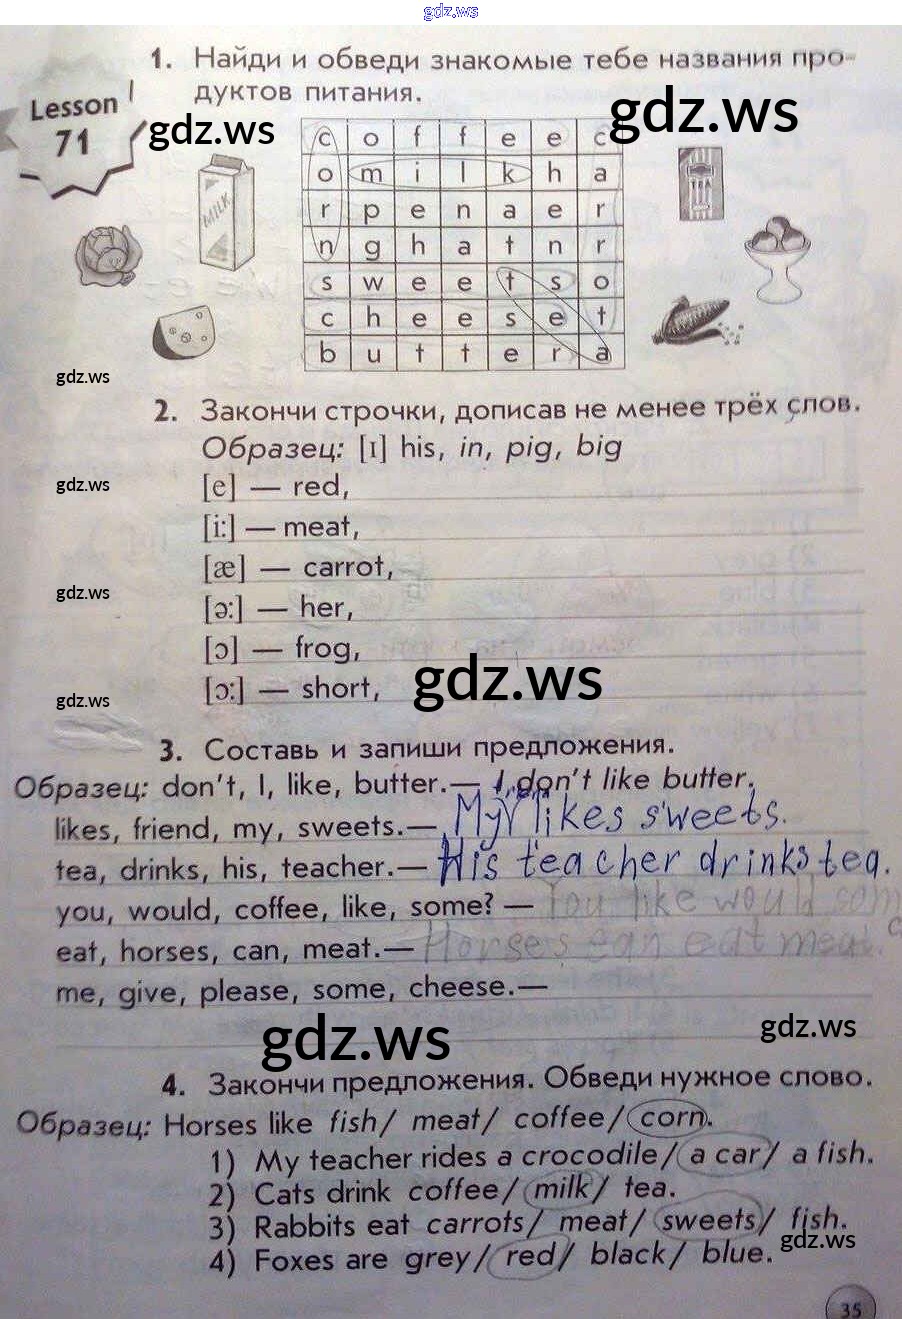 gdz.ws
1. Найди и обведи знакомые тебе названия про-
дуктов питания.
Lesson
71
gdz.ws
gdz.ws
c o f f e e c
o m i l k h a
r p e n a e r
n g h a t n r
s w e e t s o
c h e e s e t
b u t t e r a
MILK
TEA
gdz.ws
2. Закончи строчки, дописав не менее трёх слов.
Образец: [ɪ] his, in, pig, big
gdz.ws
[e] — red,
[i:] — meat,
[æ] — carrot,
gdz.ws
[ə:] — her,
[ɔ] — frog,
[ɔ:] — short,
gdz.ws
gdz.ws
3. Составь и запиши предложения.
Образец: don't, I, like, butter.— I don't like butter.
likes, friend, my, sweets.— My likes sweets.
tea, drinks, his, teacher.— His teacher drinks tea.
you, would, coffee, like, some? — You like would som
eat, horses, can, meat.— Horses can eat meat.
me, give, please, some, cheese.—
gdz.ws
gdz.ws
4. Закончи предложения. Обведи нужное слово.
Образец: Horses like fish/ meat/ coffee/ corn.
1) My teacher rides a crocodile/ a car/ a fish.
2) Cats drink coffee/ milk/ tea.
3) Rabbits eat carrots/ meat/ sweets/ fish.
gdz.ws
4) Foxes are grey/ red/ black/ blue.
35